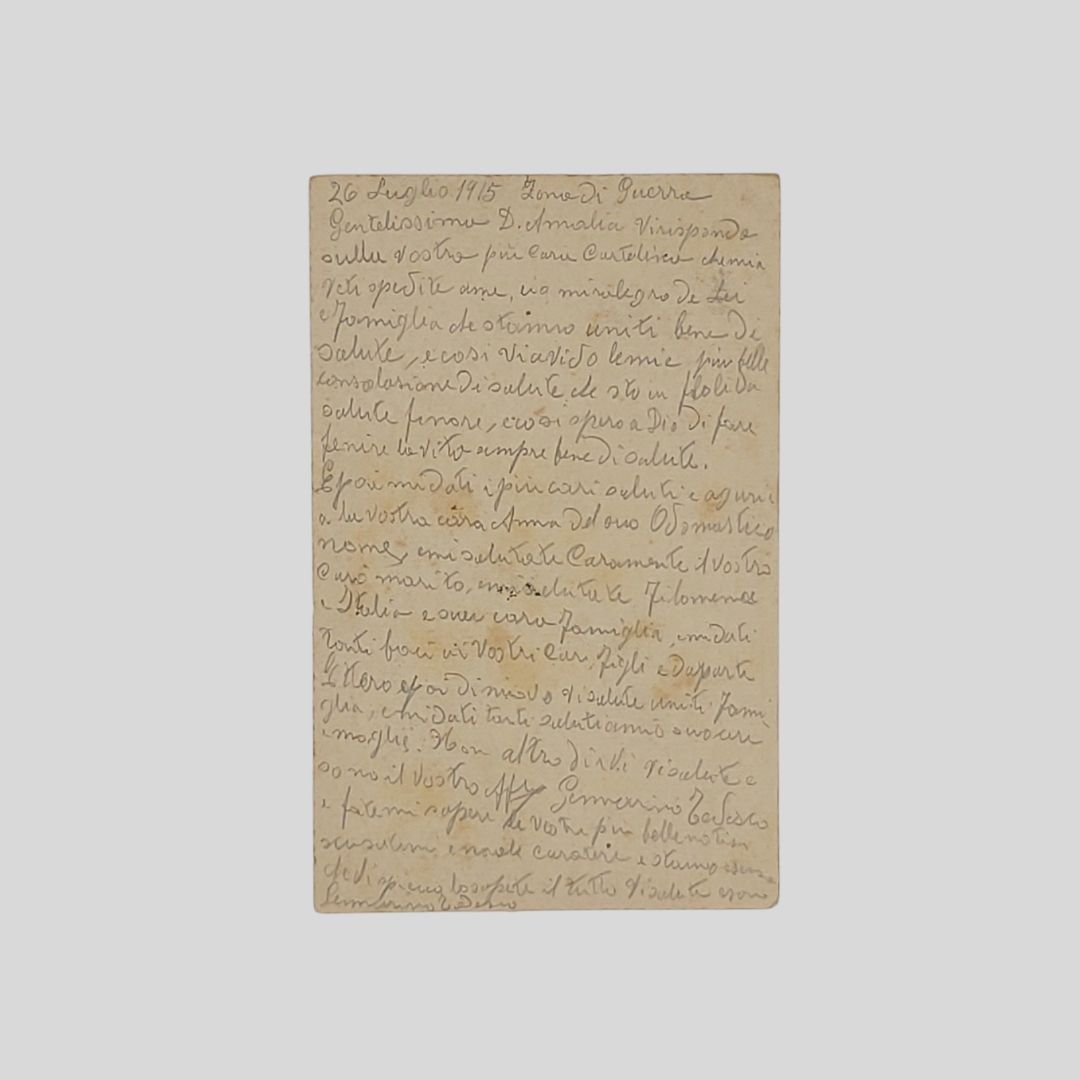 26 Luglio 1915 Zona di Guerra
Gentelissima D. Amalia Virisponda
sulla vostra più cara Cartolina chemia
veti spedite ame, miralegro de Lei
e Famiglia che stanno uniti bene di
salute, e cosi viavido lemie più belle
consolasione di salute che sto in flolida
salute finore, ecosi spero a Dio di fare
fenire la vita sempre bene di salute.
E poi midati i più cari saluti e aguri
a la vostra cara Anna del suo Odomastico
nome, emi salutate Caramente il vostro
Caro marito, emi salutate Filomena
e Italia e sua cara Famiglia, emidati
tanti baci ai Vostri Cari figli e daparte
di nuovo vi salute uniti Fami
glia, emidati tanti saluti amio suocere
e moglie. Non altro dirvi visalute e
sono il vostro Aff Gennarino Tedesco
e fatemi sapere le vostre più belle
caratere e stamo
il tutto visalute esono
Gennarino Tedesco